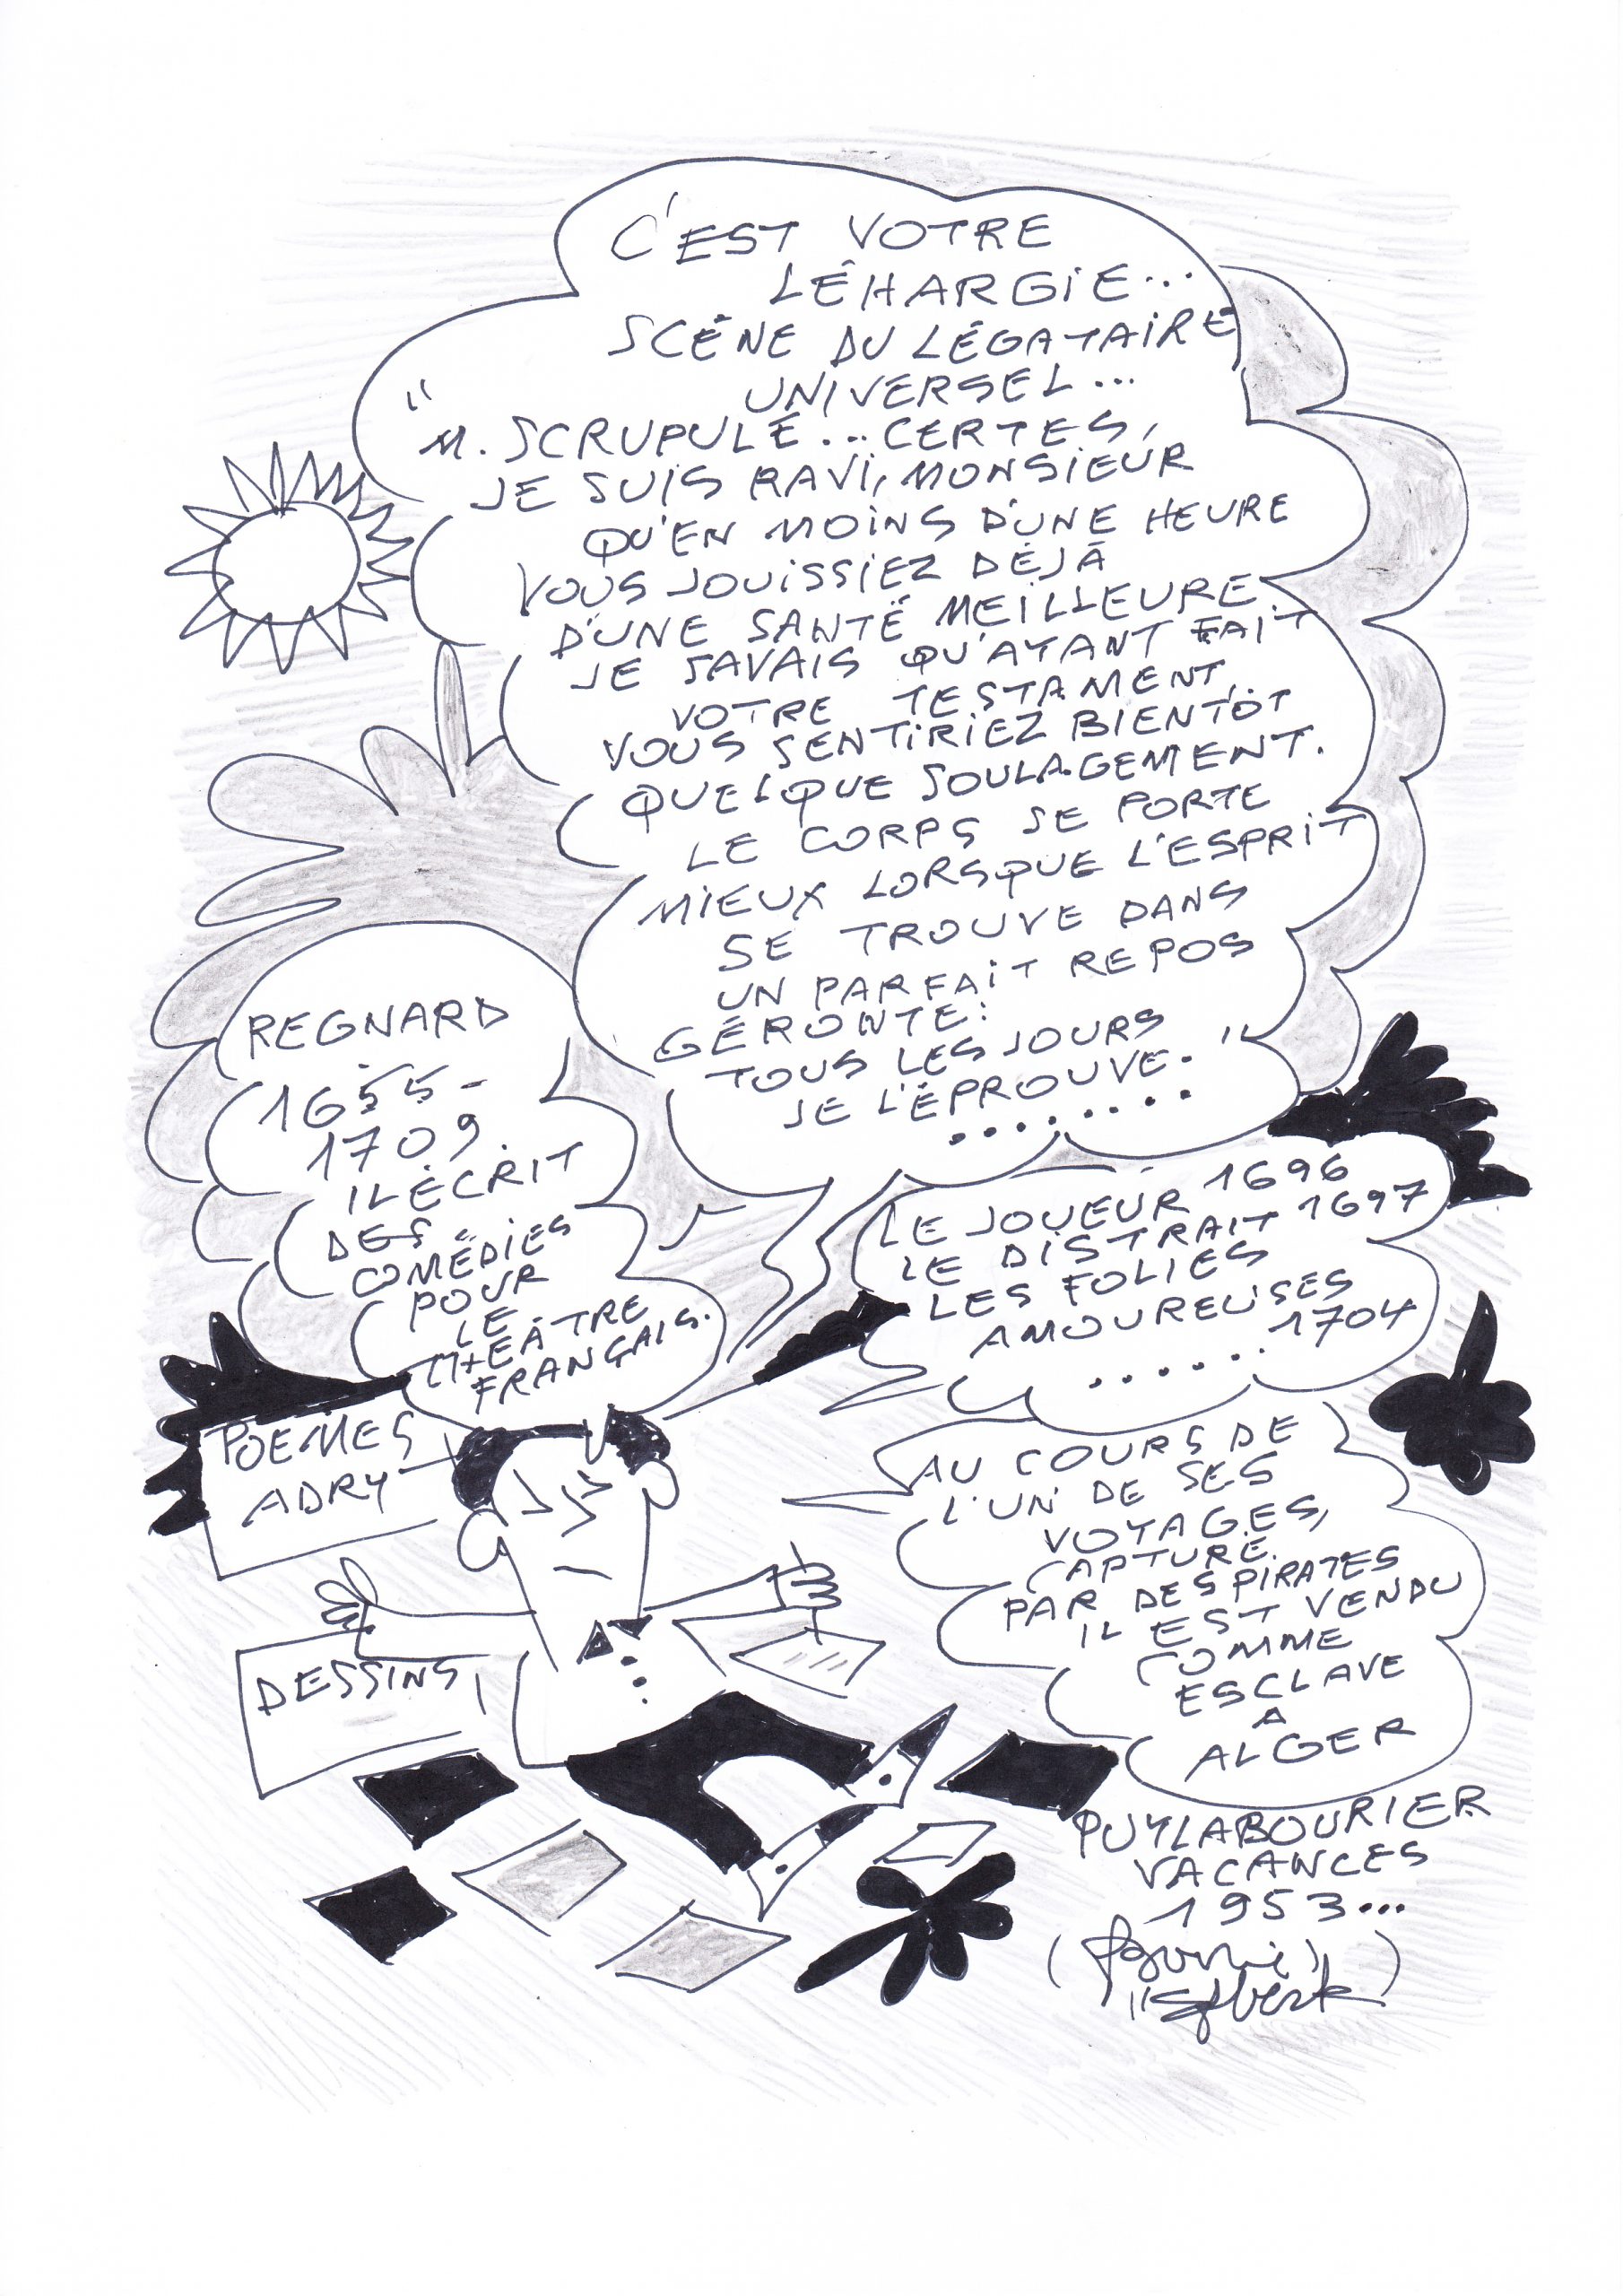 C'EST VOTRE
LÉHARGIE...
SCÈNE DU LÉGATAIRE
UNIVERSEL...
"M. SCRUPULE... CERTES,
JE SUIS RAVI, MONSIEUR
QU'EN MOINS D'UNE HEURE
VOUS JOUISSIEZ DÉJÀ
D'UNE SANTÉ MEILLEURE
JE SAVAIS QU'AYANT FAIT
VOTRE TESTAMENT,
VOUS SENTIRIEZ BIENTÔT
QUELQUE SOULAGEMENT.
LE CORPS SE PORTE
MIEUX LORSQUE L'ESPRIT
SE TROUVE DANS
UN PARFAIT REPOS
GÉRONTE:
TOUS LES JOURS
JE L'ÉPROUVE."
........
REGNARD
1655-
1709.
IL ÉCRIT
DES
COMÉDIES
POUR
LE
THÉÂTRE
FRANÇAIS.
LE JOUEUR 1696
LE DISTRAIT 1697
LES FOLIES
AMOUREUSES
......1704
AU COURS DE
L'UN DE SES
VOYAGES,
CAPTURÉ
PAR DES PIRATES
IL EST VENDU
COMME
ESCLAVE
A
ALGER
POEMES
ADRY
DESSINS
PUYLABOURIER
VACANCES
1953...